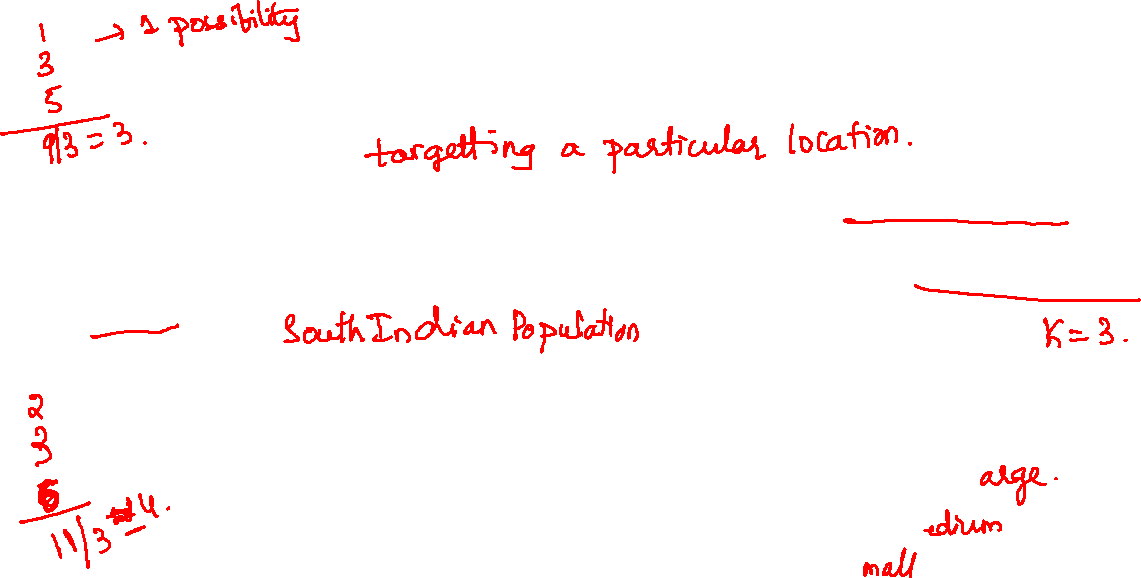 1 → 1 possibility
3
5
9/3 = 3.
targetting a particular location.
South Indian Population
K = 3.
2
3
6
11/3 = 4.
arge.
edium
mall